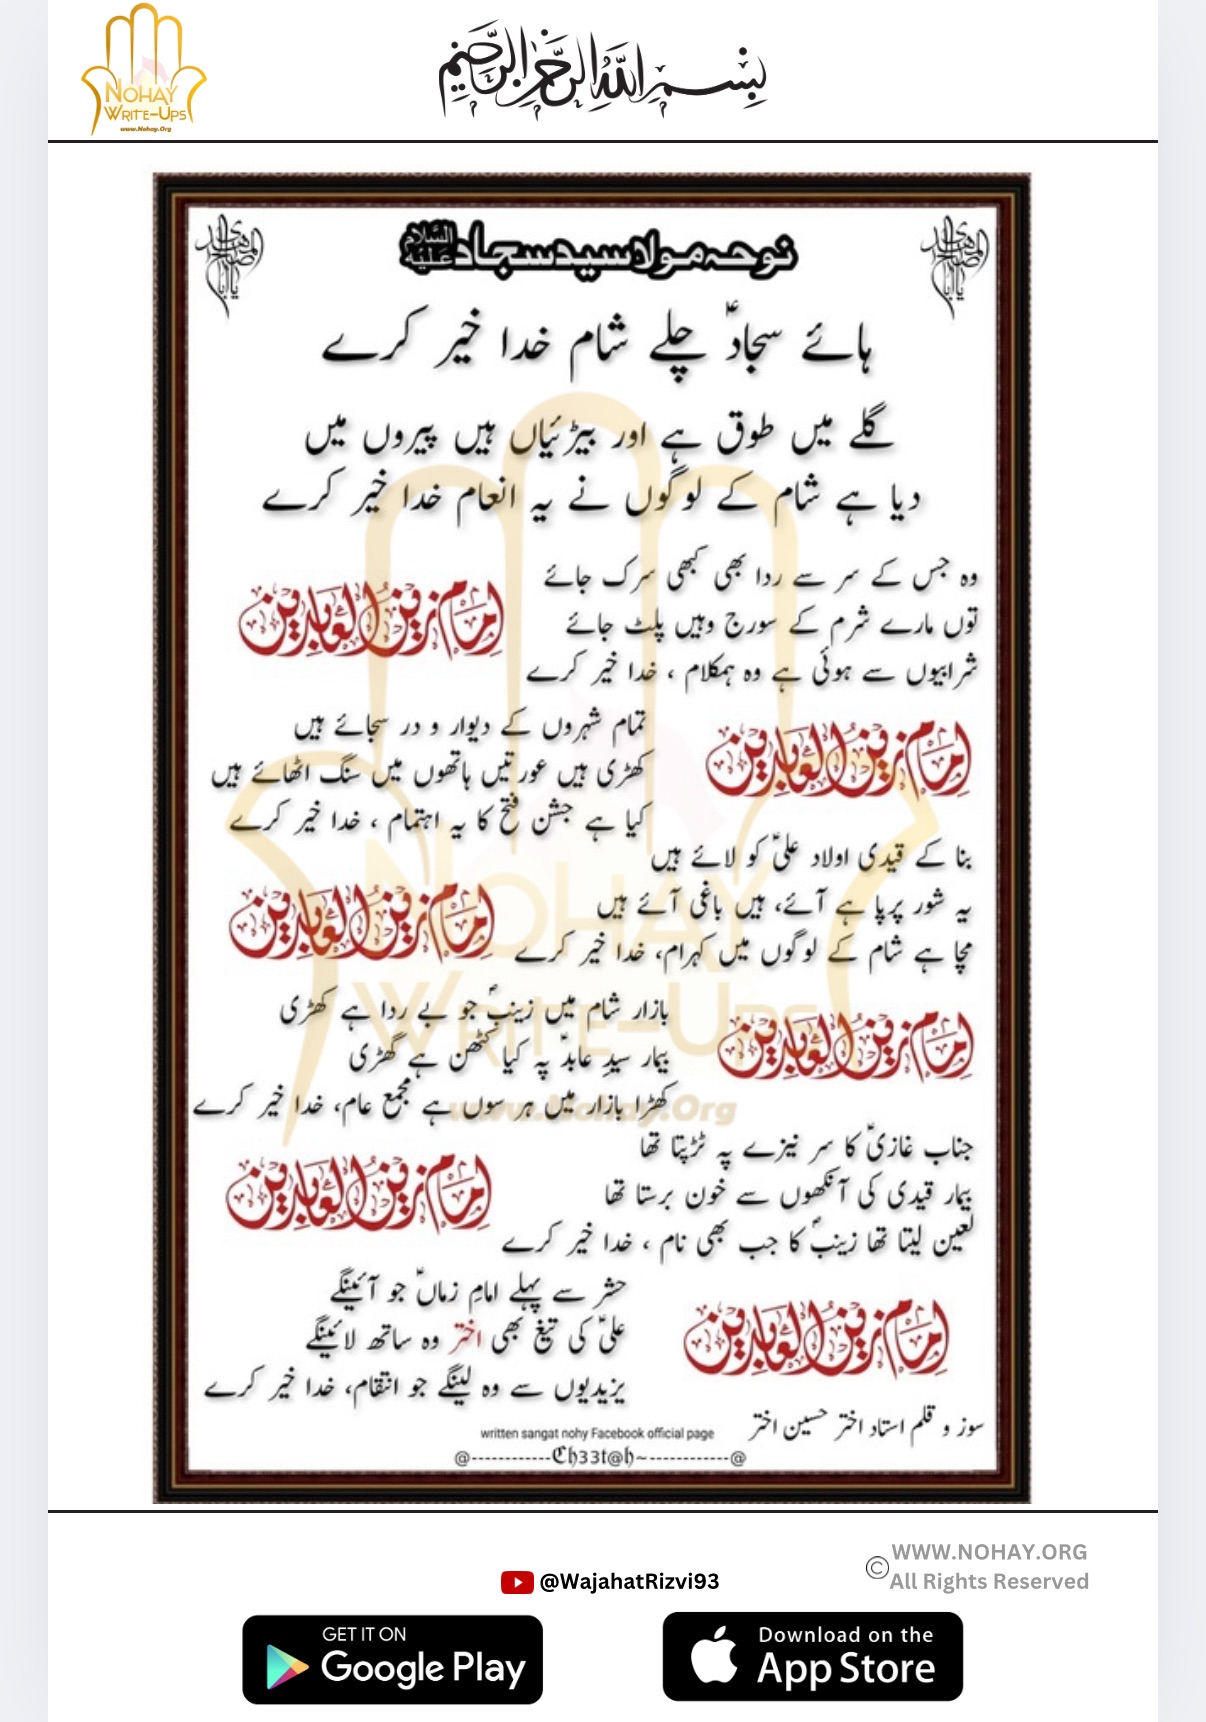 NOHAY
WRITE-UPS
www.Nohay.Org
بِسْمِ اللهِ الرَّحْمٰنِ الرَّحِيْمِ
نوحہ مولا سید سجاد علیہ السلام
ہائے سجادؑ چلے شام خدا خیر کرے
گلے میں طوق ہے اور بیڑئیاں ہیں پیروں میں
دیا ہے شام کے لوگوں نے یہ انعام خدا خیر کرے
وہ جس کے سر سے ردا بھی کبھی سرک جائے
توں مارے شرم کے سورج وہیں پلٹ جائے
شرابیوں سے ہوئی ہے وہ ہمکلام ، خدا خیر کرے
امام زین العابدین
تمام شہروں کے دیوار و در سجائے ہیں
کھڑی ہیں عورتیں ہاتھوں میں سنگ اٹھائے ہیں
کیا ہے جشن فتح کا یہ اہتمام ، خدا خیر کرے
امام زین العابدین
بنا کے قیدی اولاد علیؑ کو لائے ہیں
یہ شور پرپا ہے آئے، ہیں باغی آئے ہیں
مچا ہے شام کے لوگوں میں کہرام، خدا خیر کرے
امام زین العابدین
بازار شام میں زینبؑ جو بے ردا ہے کھڑی
بیمار سیدِ عابدؑ پہ کیا کٹھن ہے گھڑی
کھڑا بازار میں ہر سوں ہے مجمع عام، خدا خیر کرے
امام زین العابدین
جناب غازیؑ کا سر نیزے پہ تڑپتا تھا
بیمار قیدی کی آنکھوں سے خون برستا تھا
لعین لیتا تھا زینبؑ کا جب بھی نام ، خدا خیر کرے
امام زین العابدین
حشر سے پہلے امامِ زماںؑ جو آئینگے
علیؑ کی تیغ بھی اختر وہ ساتھ لائینگے
یزیدیوں سے وہ لینگے جو انتقام، خدا خیر کرے
امام زین العابدین
سوز و قلم استاد اختر حسین اختر
written sangat nohy Facebook official page
@------------Ch33t@h~------------@
NOHAY
WRITE-UPS
www.Nohay.Org
© WWW.NOHAY.ORG
All Rights Reserved
@WajahatRizvi93
GET IT ON
Google Play
Download on the
App Store